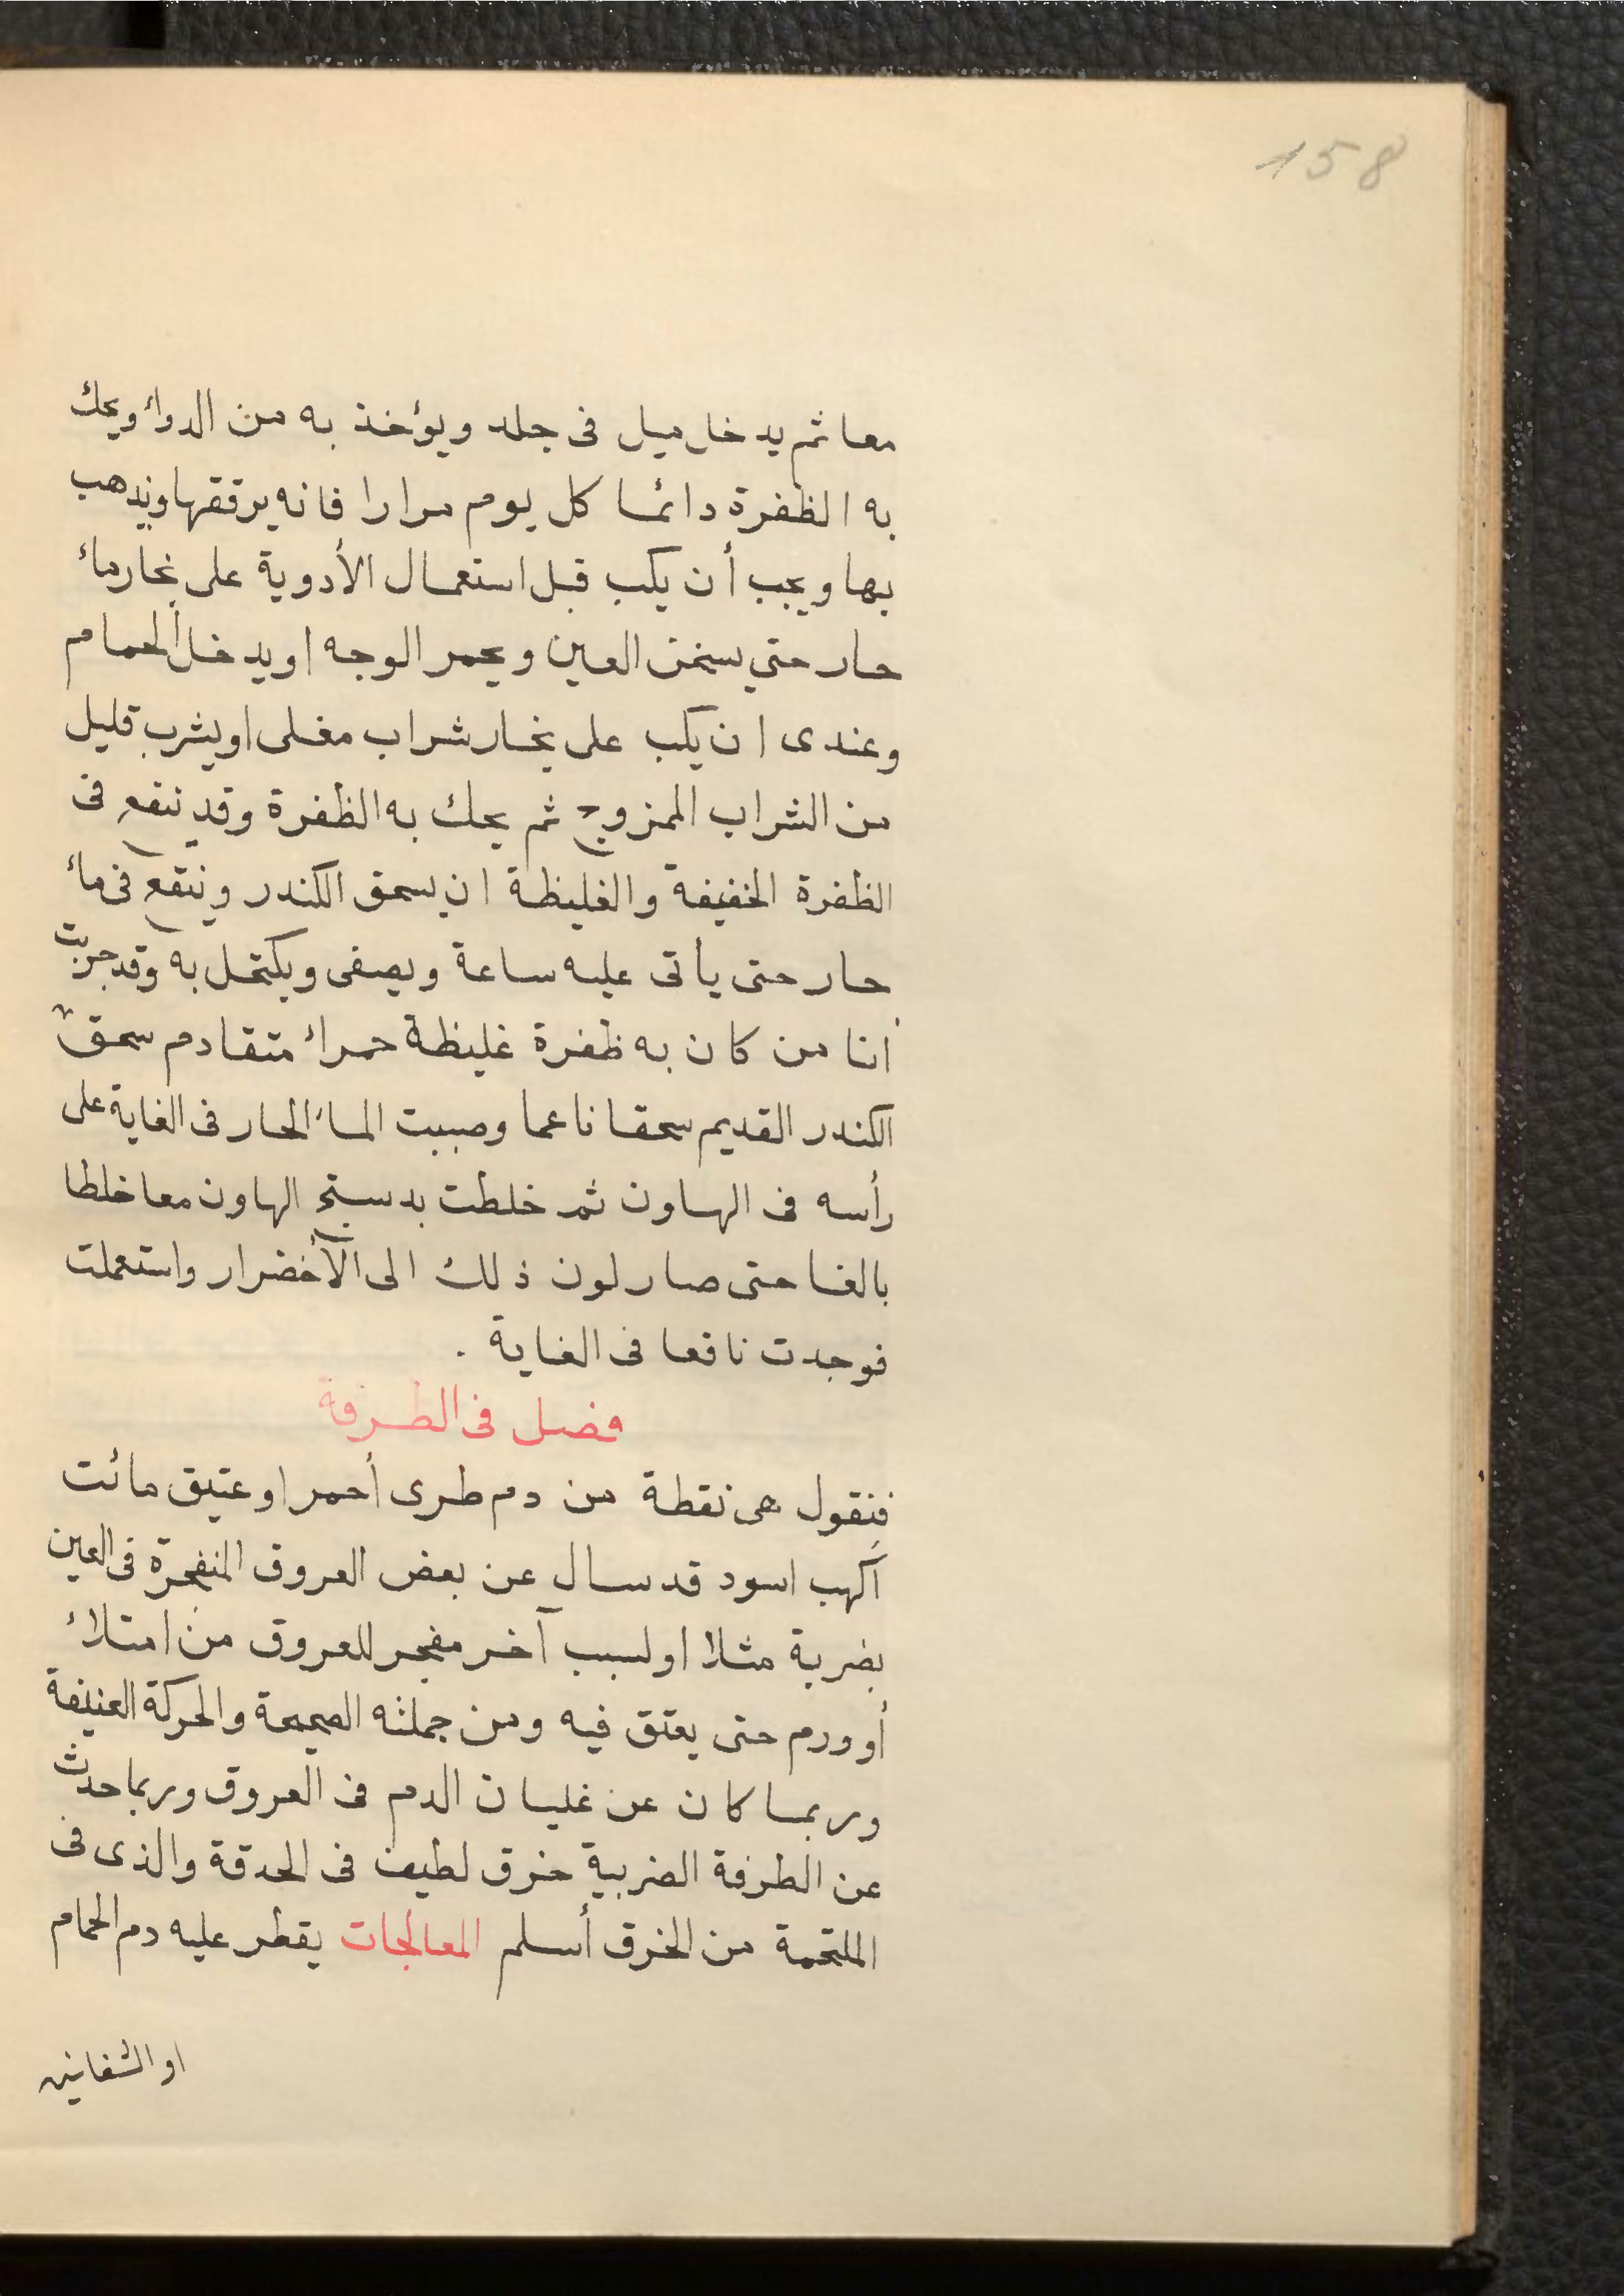 158
معا ثم يدخل ميل فى جلد ويؤخذ به من الدواء ويحك
به الظفرة دائما كل يوم مرارا فانه يرققها ويذهب
بها ويجب أن يكب قبل استعمال الأدوية على بخار ماء
حار حتى يسخن العين ويحمر الوجه او يدخل الحمام
وعندى ان يكب على بخار شراب مغلى او يشرب قليل
من الشراب الممزوج ثم يحك به الظفرة وقد ينفع فى
الظفرة الخفيفة والغليظة ان يسحق الكندر وينقع فى ماء
حار حتى يأتى عليه ساعة ويصفى ويكتحل به وقد جربت
انا من كان به ظفرة غليظة حمراء متقادم سحقت
الكندر القديم سحقا ناعما وصببت الماء الحار فى الغاية على
رأسه فى الهاون ثم خلطت بدستج الهاون معا خلطا
بالغا حتى صار لون ذلك الى الأخضرار واستعملت
فوجدت نافعا فى الغاية .
فصل فى الطرفة
فنقول هى نقطة من دم طرى أحمر او عتيق مائت
أكهب اسود قد سال عن بعض العروق المنفجرة فى العين
بضربة مثلا او لسبب آخر مفجر للعروق من امتلاء
أو ورم حتى يعتق فيه ومن جملته الصيحة والحركة العنيفة
وربما كان عن غليان الدم فى العروق وربما حدث
عن الطرفة الضربية خرق لطيف فى الحدقة والذى فى
الملتحمة من الخرق أسلم المعالجات يقطر عليه دم الحمام
او الشفانين